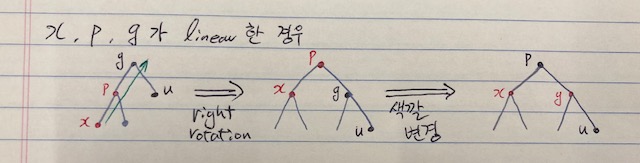 x, p, g 가 linear 한 경우
g
p
u
x
right
rotation
p
x
g
u
색깔
변경
p
x
g
u